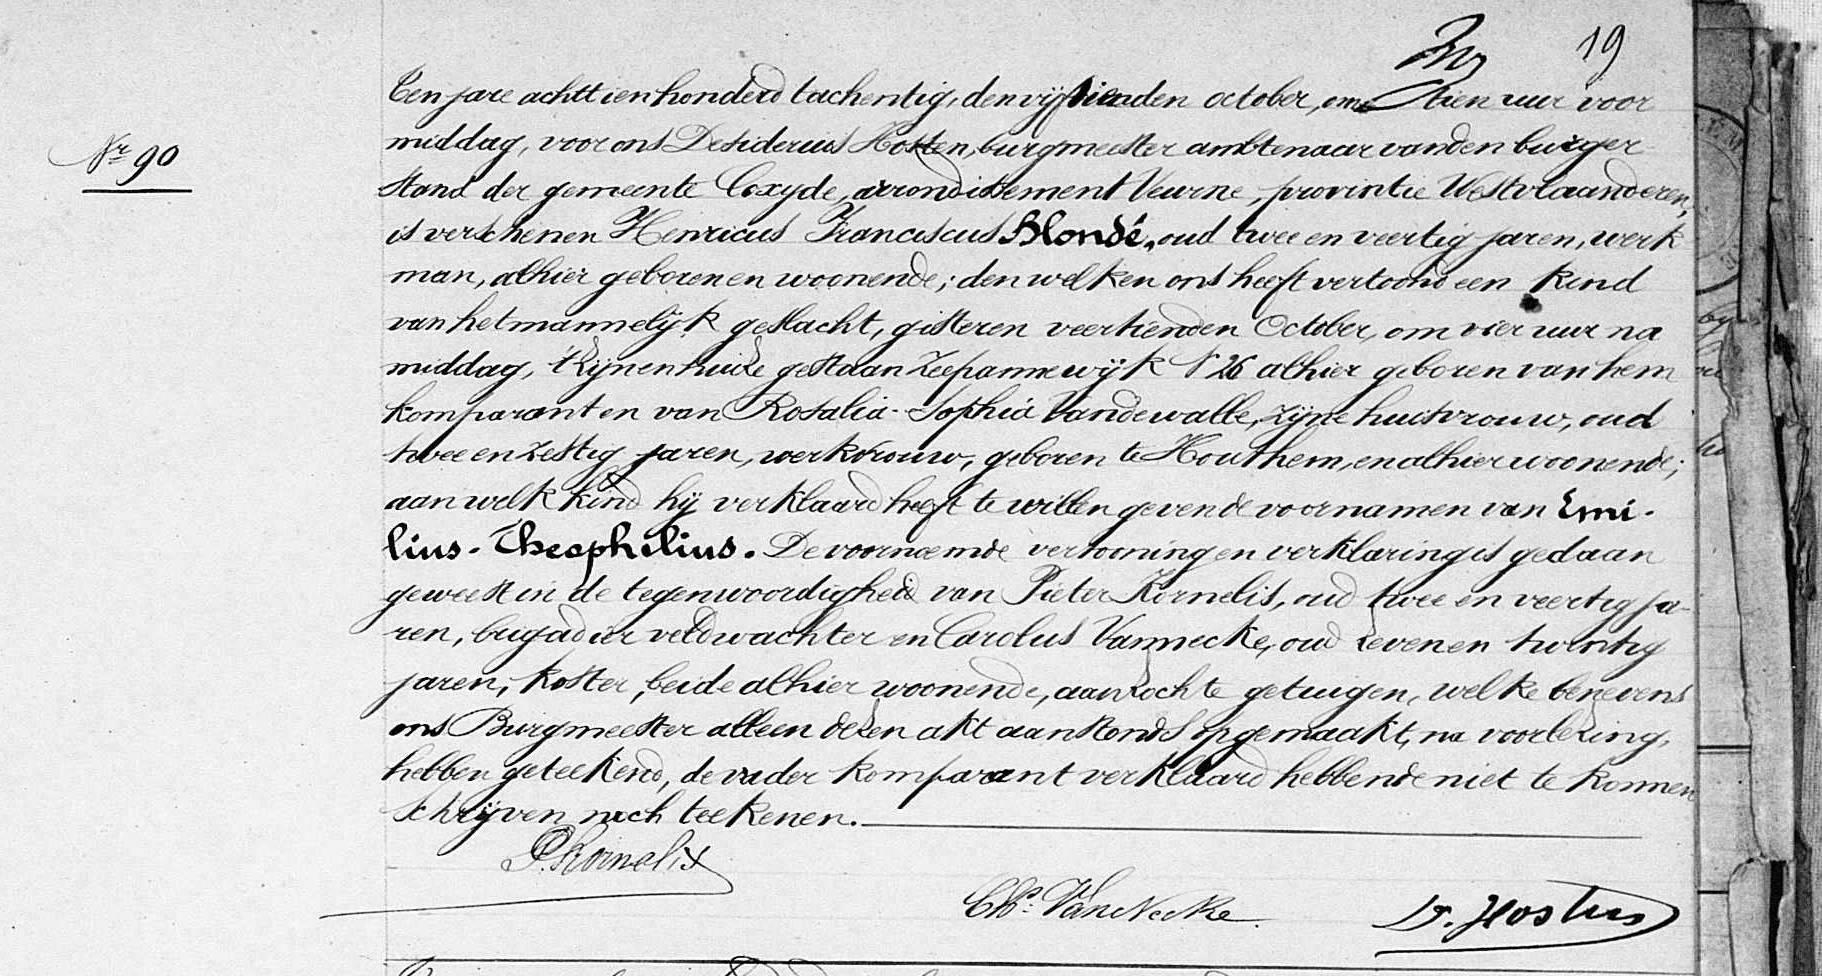 19
Ten jare achttien honderd tachentig, den vijftienden october, om tien uur voor
Nr 90
middag, voor ons Desiderius Hosten, burgmeester ambtenaar van den burger
stand der gemeente Coxyde, arrondissement Veurne, provintie Westvlaanderen,
is verschenen Henricus Franciscus Blondé, oud twee en veertig jaren, werk
man, alhier geboren en woonende; den welken ons heeft vertoond een kind
van het mannelijk geslacht, gisteren veertienden October, om vier uur na
middag, t'zijnen huize gestaan Zeepannewijk N 26 alhier geboren van hem
komparant en van Rosalia-Sophia Vandewalle, zijne huisvrouw, oud
twee en zestig jaren, werkvrouw, geboren te Houthem, en alhier woonende;
aan welk kind hij verklaard heeft te willen geven de voornamen van Emi-
lius-Theophilius. De voornoemde vertooning en verklaring is gedaan
geweest in de tegenwoordigheid van Pieter Kornelis, oud twee en veertig ja-
ren, brigadier veldwachter en Carolus Vannecke, oud zeven en twintig
jaren, koster, beide alhier woonende, aanzochte getuigen, welke benevens
ons Burgmeester alleen dezen akt aanstonds opgemaakt, na voorlezing,
hebben geteekend, de vader komparant verklaard hebbende niet te konnen
schrijven noch teekenen.
P. Kornelis
Chs. Vannecke
D. Hosten